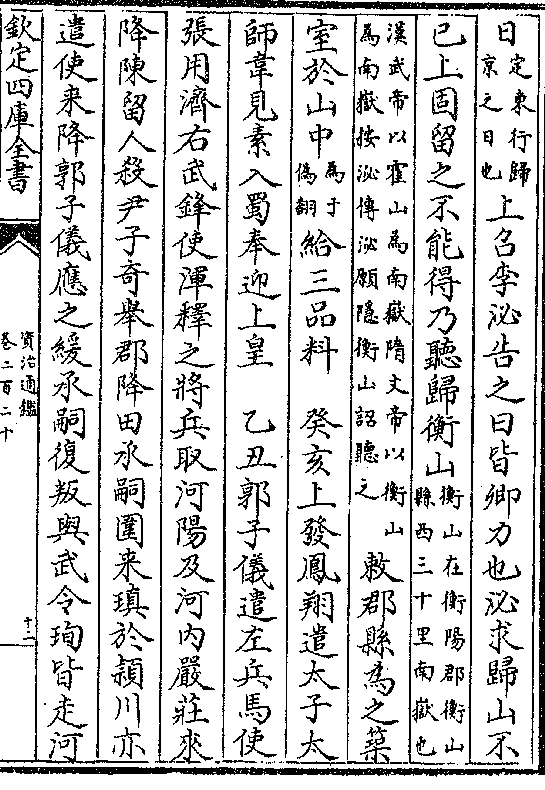 日定東行歸京之日也上召李泌告之曰皆卿力也泌求歸山不
已上固留之不能得乃聽歸衡山衡山在衡陽郡衡山縣西三十里南嶽也
漢武帝以霍山為南嶽隋文帝以衡山為南嶽按泌傳泌願隱衡山詔聽之敕郡縣為之築
室於山中為于偽翻給三品料 癸亥上發鳳翔遣太子太
師韋見素入蜀奉迎上皇 乙丑郭子儀遣左兵馬使
張用濟右武鋒使渾釋之將兵取河陽及河内嚴莊來
降陳留人殺尹子奇舉郡降田承嗣圍来瑱於頴川亦
遣使来降郭子儀應之緩承嗣復叛與武令珣皆走河
欽定四庫全書
資治通鑑
卷二百二十
十二